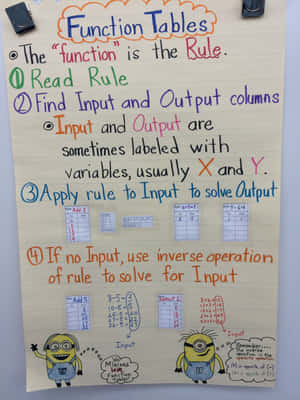 Function Tables
The "function" is the Rule.
① Read Rule
② Find Input and Output columns
Input and Output are
sometimes labeled with
variables, usually X and Y.
③ Apply rule to Input to solve Output
④ If no Input, use inverse operation
of rule to solve for Input
Input
Input
Minions
Function
Remember:
the inverse
operation is the
opposite operation